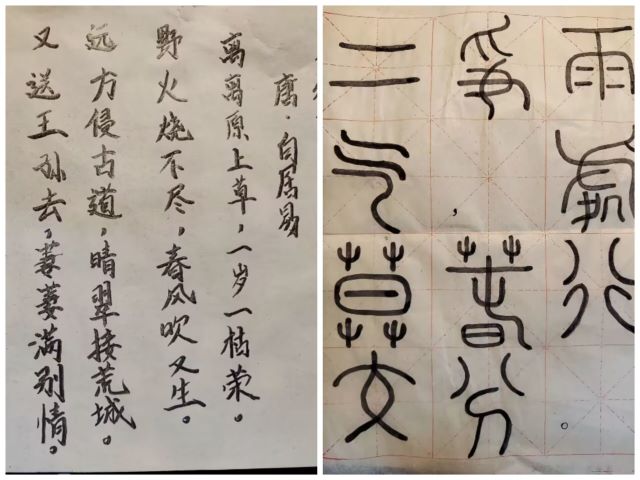 唐·白居易
离离原上草，一岁一枯荣。
野火烧不尽，春风吹又生。
远方侵古道，晴翠接荒城。
又送王孙去，萋萋满别情。
二气莫交
爭，春分
雨處行。